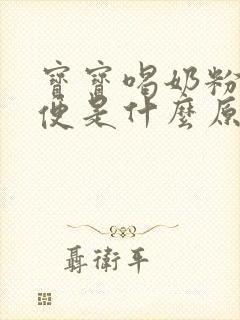 寶寶喝奶粉
便是什麼原
聶衛平